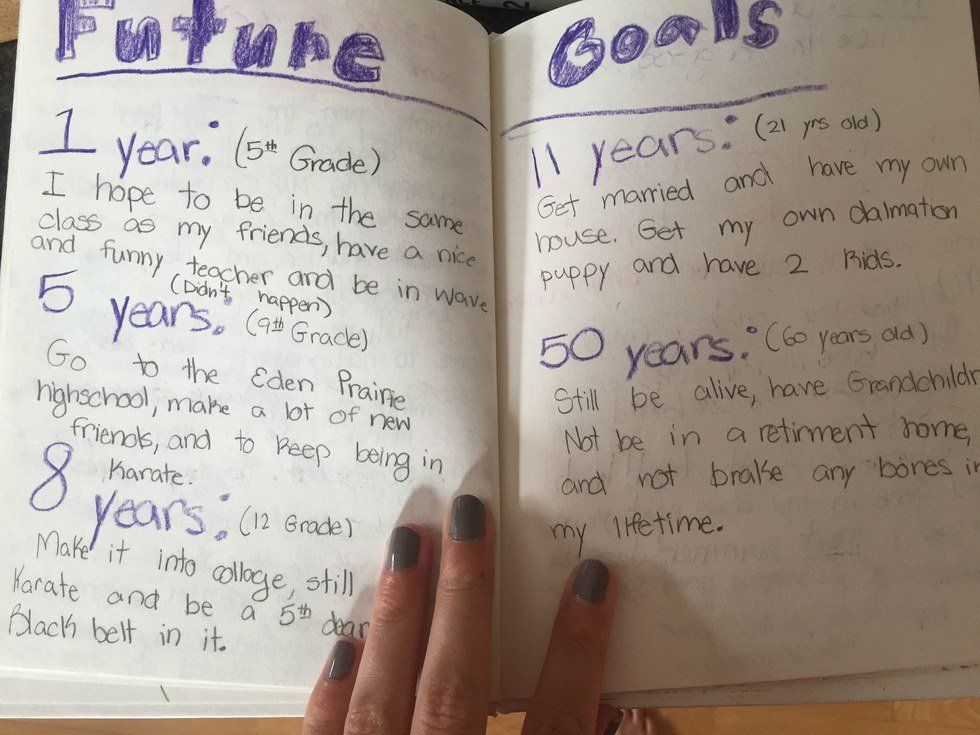 Future
1 year: (5th Grade)
I hope to be in the same
class as my friends, have a nice
and funny teacher and be in wave
(Didn't happen)
5 years: (9th Grade)
Go to the Eden Prairie
highschool, make a lot of new
friends, and to keep being in
Karate.
8 years: (12 Grade)
Make it into colloge, still
Karate and be a 5th
Black belt in it.
Goals
11 years: (21 yrs old)
Get married and have my own
house. Get my own dalmation
puppy and have 2 kids.
50 years: (60 years old)
Still be alive, have Grandchildr
Not be in a retirment home,
and not brake any bones in
my lifetime.